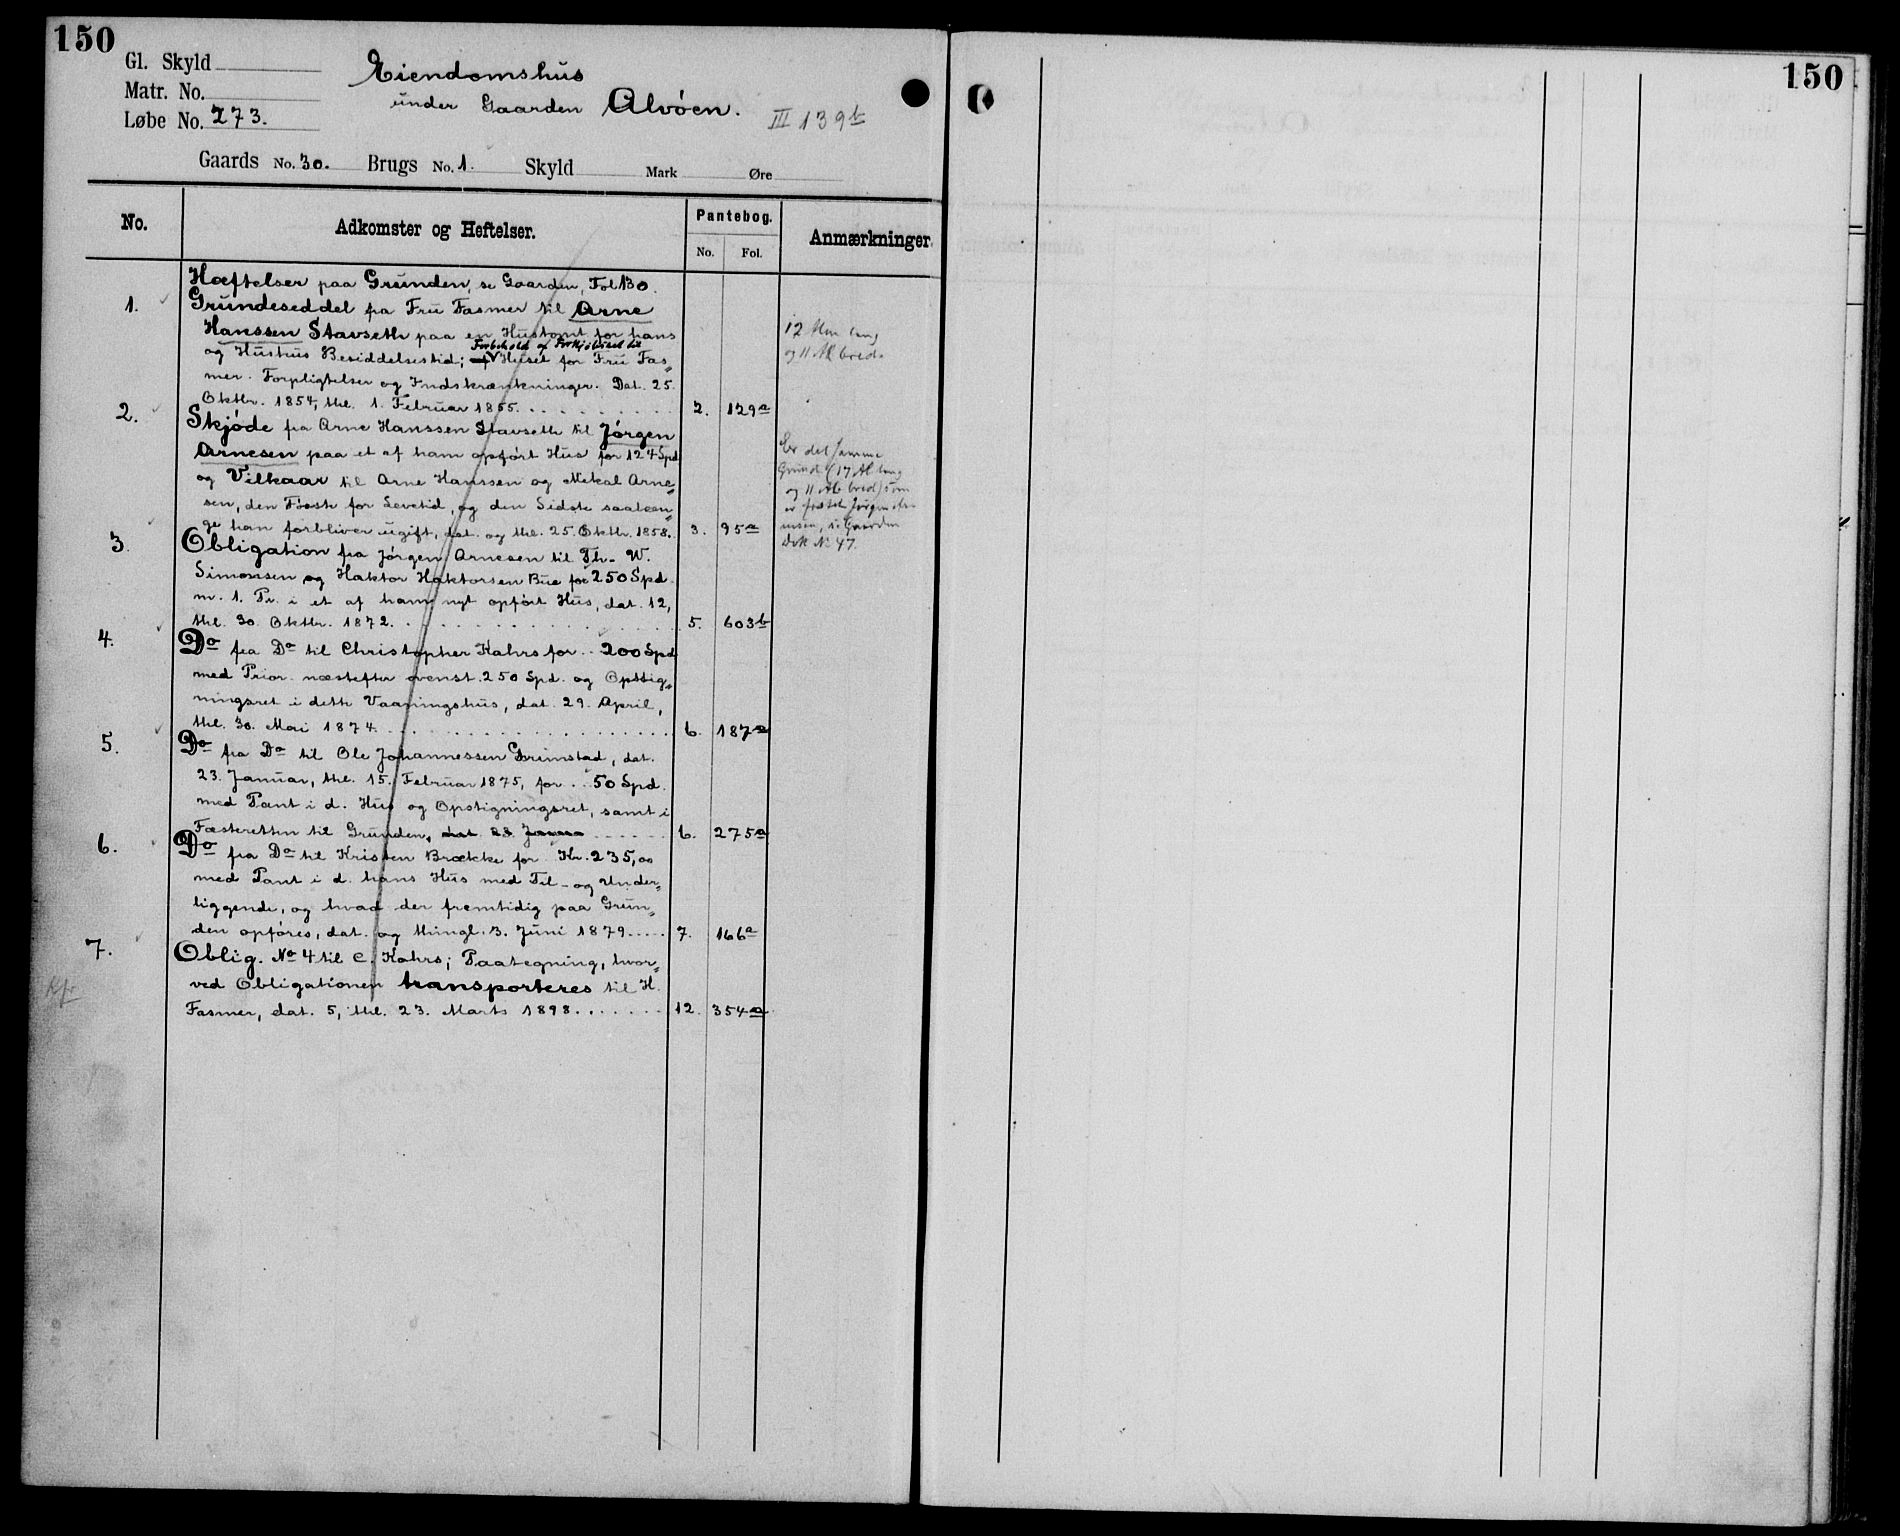 150
150
Gl. Skyld
Matr. No.
Løbe No. 273.
Eiendomshus
under Gaarden Alvöen.
III 139b
Gaards No. 30. Brugs No. 1. Skyld Mark Øre
No.
Adkomster og Heftelser.
Pantebog.
No. Fol.
Anmærkninger.
Hæftelser paa Grunden, se Gaarden, Fol 130.
1. Grundeseddel fra Fru Fasmer til Arne
Hanssen Stavseth paa en Hustomt for hans
og Hustrus Besiddelsestid; Forbehold af Forkjöbsret til Huset for Fru Fas„
mer. Forpligtelser og Indskrænkninger. Dat. 25.
Oktbr. 1854, thl. 1. Februar 1855. 2. 129a
12 Alen lang
og 11 Al. bred.
2. Skjöde fra Arne Hanssen Stavseth til Jörgen
Arnesen paa et af ham opfört Hus for 124 Spd
og Vilkaar til Arne Hanssen og Mikal Arne„
sen, den Förste for Levetid, og den Sidste saalæn„
ge han forbliver ugift, dat. og thl. 25. Oktbr. 1858. 3. 95a
Er det samme
Grund (17 Al lang
og 11 Al. bred) som
er fæstet Jörgen Ar
nesen, se Gaarden
Dok No 47.
3. Obligation fra Jörgen Arnesen til Th. W.
Simonsen og Haktor Haktorsen Bue for 250 Spd.
m. 1. Pr. i et af ham nyt opfört Hus, dat. 12,
thl. 30. Oktbr. 1872. 5. 603b
4. Do fra Do til Christopher Kahrs for .. 200 Spd
med Prior. næstefter ovenst. 250 Spd. og Opstig„
ningsret i dette Vaaningshus, dat. 29. April,
thl. 30. Mai 1874. 6. 187a
5. Do fra Do til Ole Johannessen Grimstad, dat.
23. Januar, thl. 15. Februar 1875, for .. 50 Spd.
med Pant i d. Hus og Opstigningsret, samt i
Fæsteretten til Grunden, dat. 23. Janua 6. 275a
6. Do fra Do til Kristen Brække for Kr. 235,00
med Pant i d. hans Hus med Til- og Under„
liggende, og hvad der fremtidig paa Grun„
den opföres, dat. og thingl. 3. Juni 1879. 7. 166a
7. Oblig. No 4 til C. Kahrs; Paategning, hvor„
ved Obligationen transporteres til H.
Fasmer, dat. 5, thl. 23. Marts 1898. 12. 354a